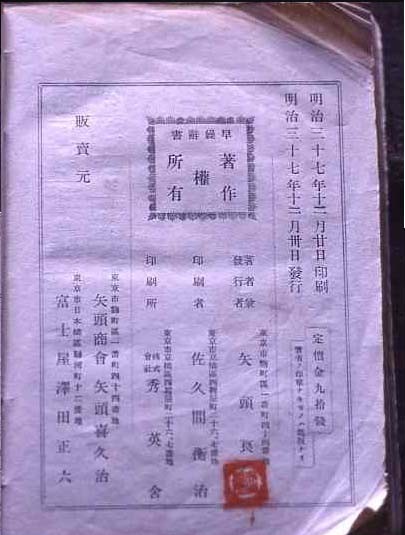 明治三十七年十二月廿日印刷
明治三十七年十二月卅日發行
定價金九拾錢
早繰辭書
著作
權
所有
著者兼
發行者
東京市麴町區一番町四十四番地
矢頭良
印刷者
東京市京橋區西紺屋町二十六、七番地
佐久間衡治
印刷所
東京市京橋區西紺屋町二十六、七番地
株式
會社
秀英舍
販賣元
東京市麴町區一番町四十四番地
矢頭商會 矢頭喜久治
東京市日本橋區駿河町十二番地
富士屋澤田正六